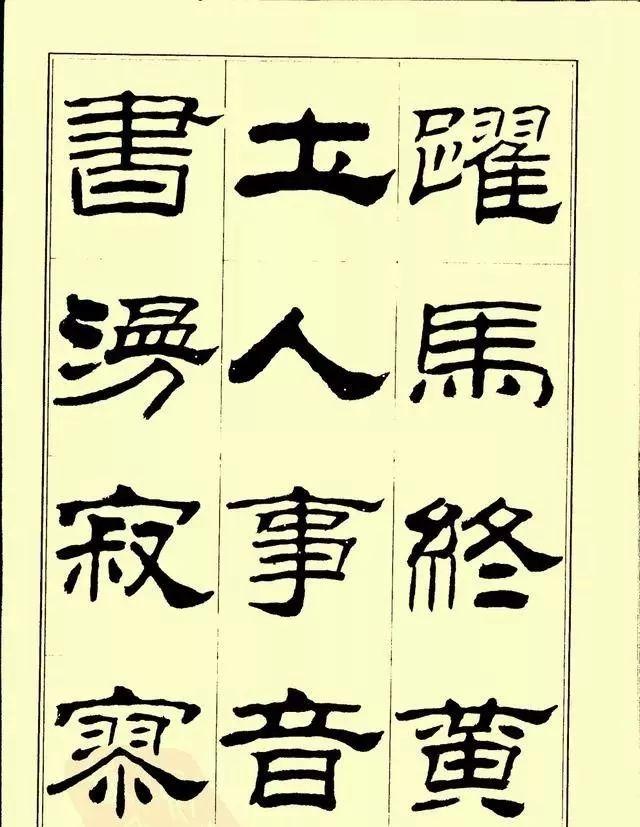 躍馬終黄
土人事音
書漫寂寥